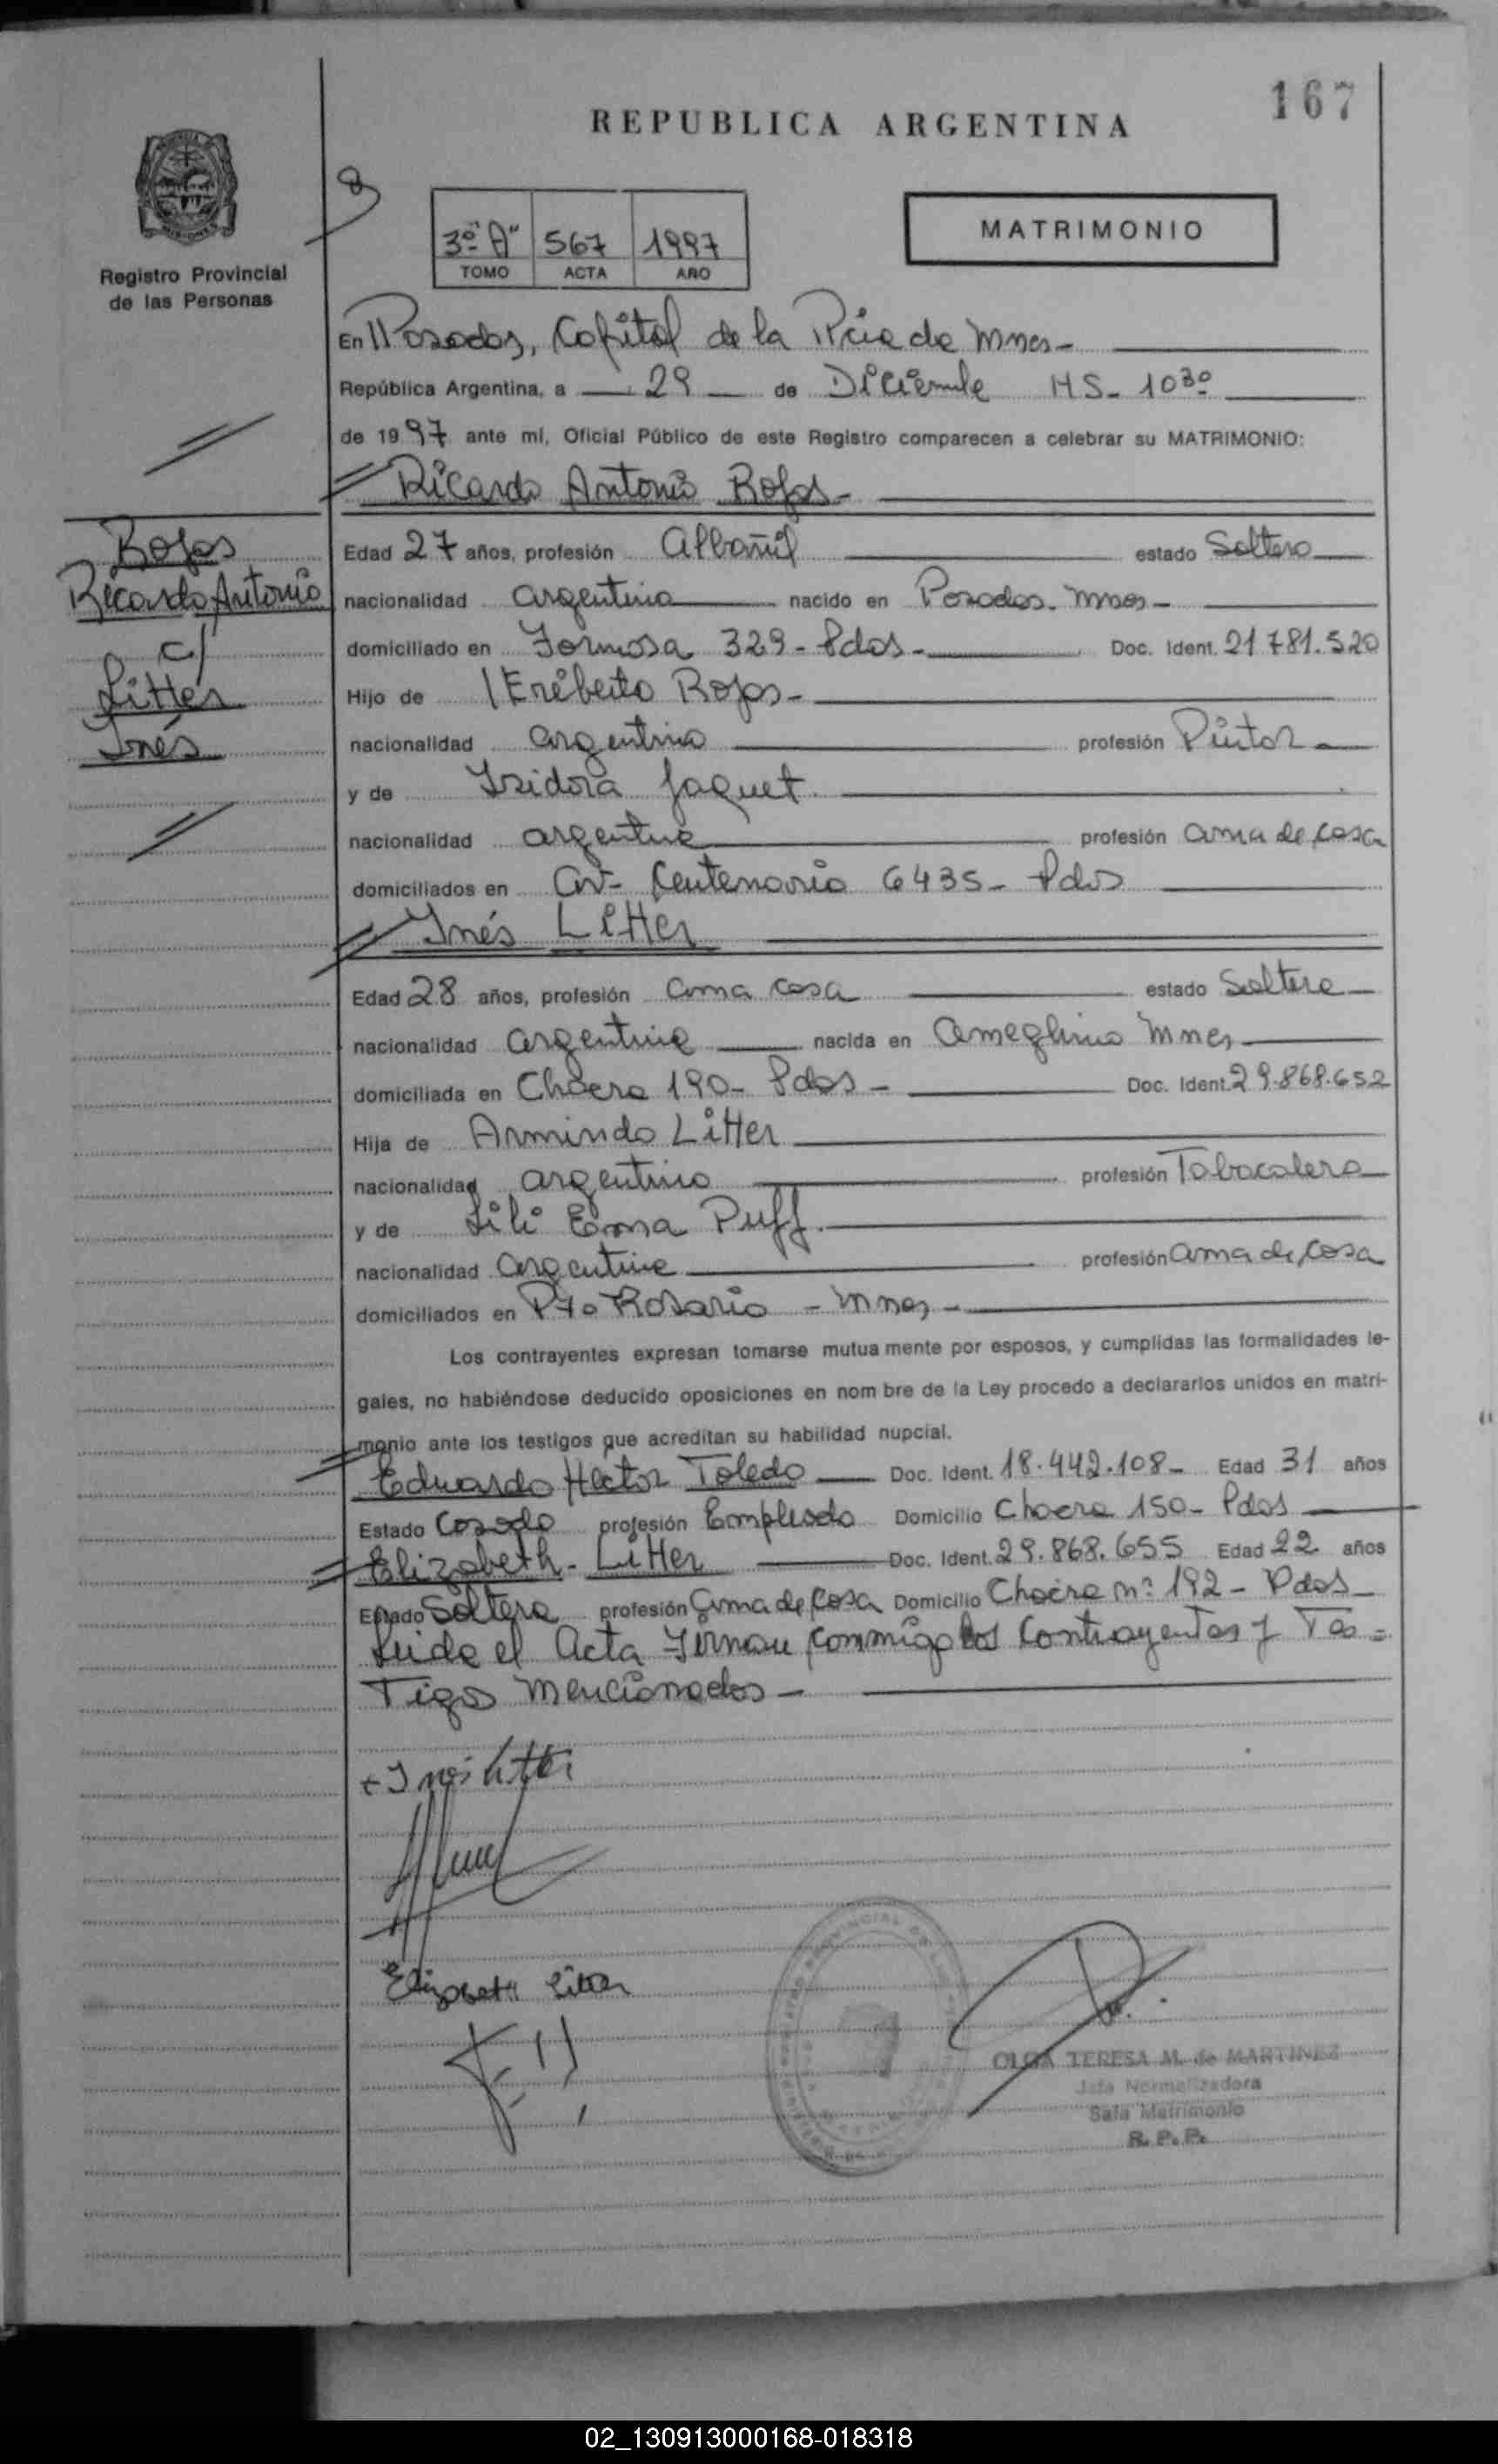 167
REPUBLICA ARGENTINA
Registro Provincial
de las Personas
3º "A" 567 1997
TOMO ACTA AÑO
MATRIMONIO
En Posadas, Capital de la Pcia de Mnes-
República Argentina, a 29 de Diciembre HS- 10 30
de 1997 ante mí, Oficial Público de este Registro comparecen a celebrar su MATRIMONIO:
Ricardo Antonio Rojas-
Rojas
Ricardo Antonio
c/
Litter
Inés
Edad 27 años, profesión Albañil estado Soltero
nacionalidad argentino nacido en Posadas- Mnes-
domiciliado en Formosa 329- Pdas- Doc. Ident. 21.781.520
Hijo de Eriberto Rojas-
nacionalidad argentino profesión Pintor
y de Isidora Jaquet.
nacionalidad argentina profesión ama de casa
domiciliados en Av- Centenario 6435- Pdas
Inés Litter
Edad 28 años, profesión ama casa estado Soltera
nacionalidad argentina nacida en Ameghino Mnes
domiciliada en Chacra 190- Pdas- Doc. Ident. 29.868.652
Hija de Armindo Litter
nacionalidad argentino profesión Tabacalero
y de Lili Ema Puff.
nacionalidad argentina profesión ama de casa
domiciliados en Pto Rosario - Mnes-
Los contrayentes expresan tomarse mutua mente por esposos, y cumplidas las formalidades le-
gales, no habiéndose deducido oposiciones en nom bre de la Ley procedo a declararlos unidos en matri-
monio ante los testigos que acreditan su habilidad nupcial.
Eduardo Héctor Toledo Doc. Ident. 18.442.108- Edad 31 años
Estado Casado profesión Empleado Domicilio Chacra 150- Pdas
Elizabeth- Litter Doc. Ident. 29.868.655 Edad 22 años
Estado Soltera profesión ama de casa Domicilio Chacra nº 192- Pdas-
Leida el Acta Firman conmigo los Contrayentes y Tes=
Tigos mencionados-
+ Inés Litter
Elizabeth Litter
OLGA TERESA M. de MARTINEZ
Jefa Normalizadora
Sala Matrimonio
R. P. P.
02_130913000168-018318